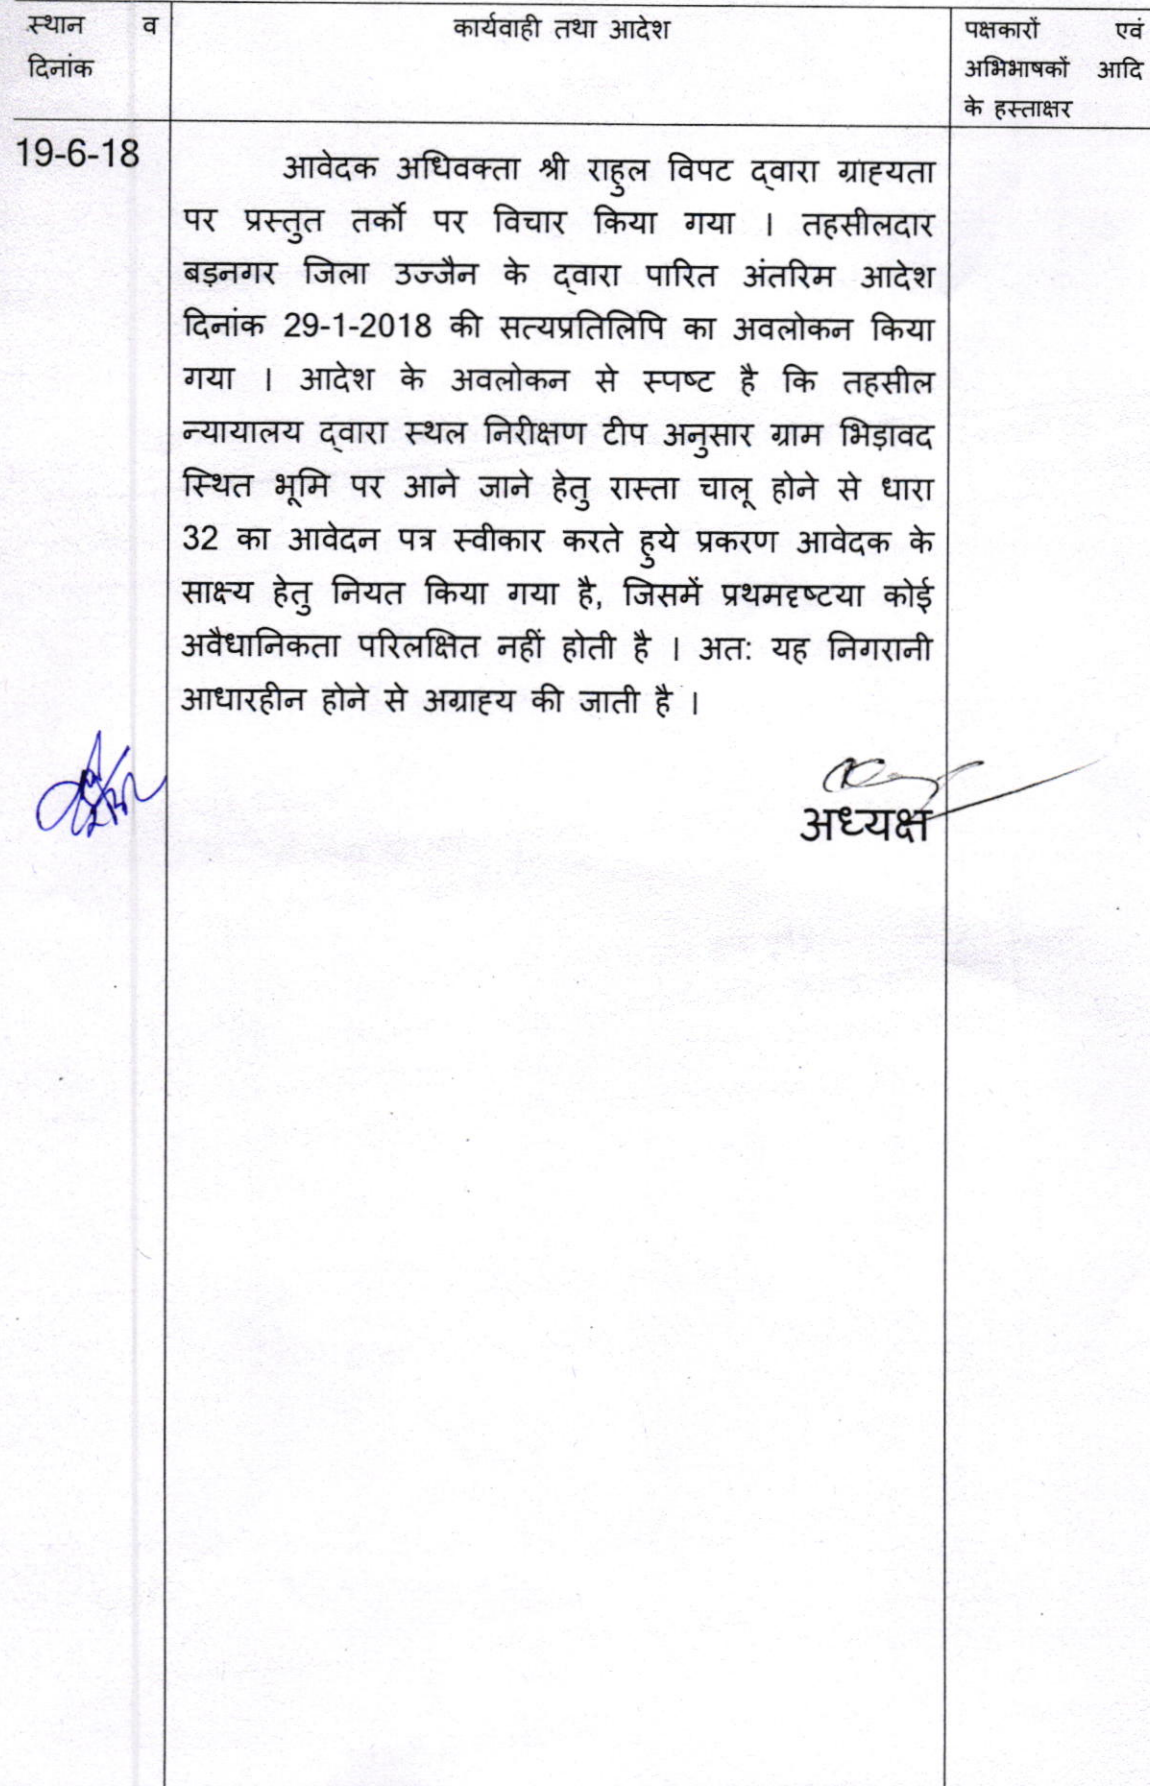 स्थान व
दिनांक
कार्यवाही तथा आदेश
पक्षकारों एवं
अभिभाषकों आदि
के हस्ताक्षर
19-6-18
आवेदक अधिवक्ता श्री राहुल विपट द्वारा ग्राह्यता
पर प्रस्तुत तर्कों पर विचार किया गया । तहसीलदार
बड़नगर जिला उज्जैन के द्वारा पारित अंतरिम आदेश
दिनांक 29-1-2018 की सत्यप्रतिलिपि का अवलोकन किया
गया । आदेश के अवलोकन से स्पष्ट है कि तहसील
न्यायालय द्वारा स्थल निरीक्षण टीप अनुसार ग्राम भिड़ावद
स्थित भूमि पर आने जाने हेतु रास्ता चालू होने से धारा
32 का आवेदन पत्र स्वीकार करते हुये प्रकरण आवेदक के
साक्ष्य हेतु नियत किया गया है, जिसमें प्रथमदृष्टया कोई
अवैधानिकता परिलक्षित नहीं होती है । अत: यह निगरानी
आधारहीन होने से अग्राह्य की जाती है ।
अध्यक्ष